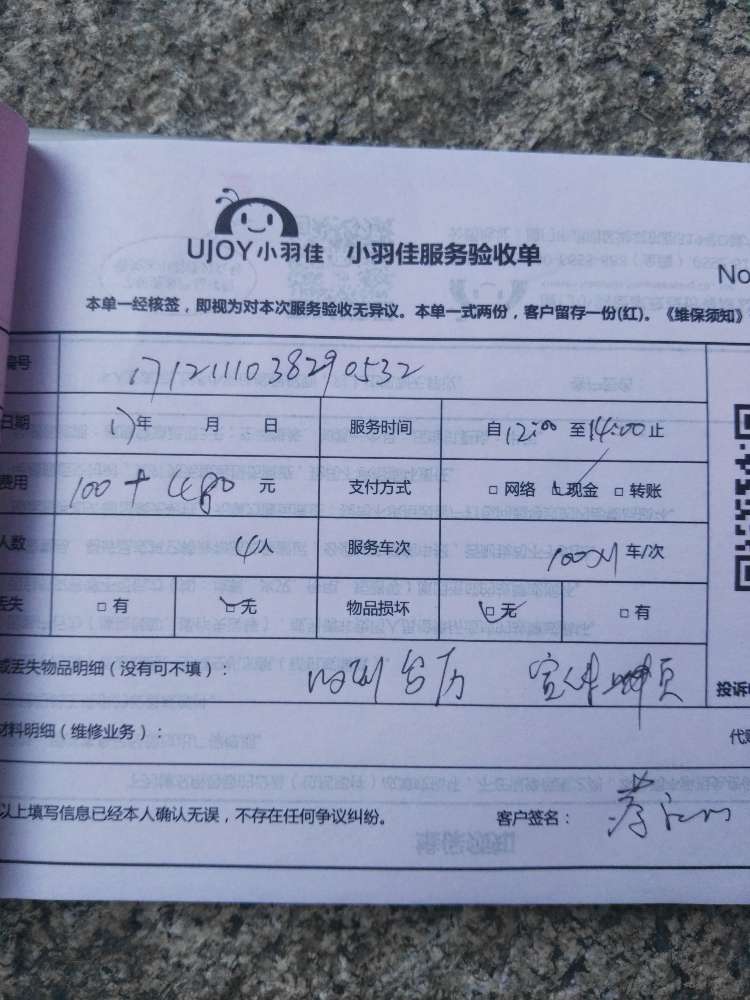 UJOY小羽佳 小羽佳服务验收单
No
本单一经核签，即视为对本次服务验收无异议。本单一式两份，客户留存一份(红)。《维保须知》
编号 1712111038290532
日期 17年 月 日 服务时间 自12:00至14:00止
费用 100+480元 支付方式 □ 网络 □ 现金 □ 转账
人数 4人 服务车次 100×1 车/次
丢失 □ 有 □ 无 物品损坏 □ 无 □ 有
或丢失物品明细（没有可不填）： 收到台历 宣传单页
投诉
材料明细（维修业务）：
以上填写信息已经本人确认无误，不存在任何争议纠纷。 客户签名：